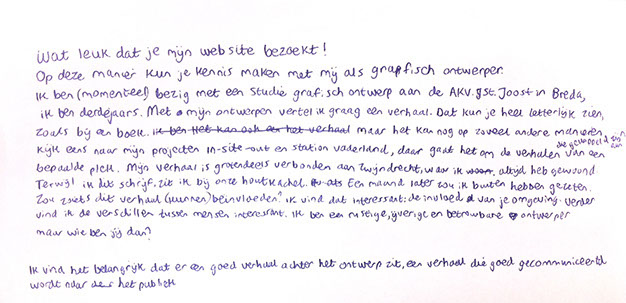 Wat leuk dat je mijn website bezoekt!
Op deze manier kun je kennis maken met mij als grapfisch ontwerper.
Ik ben (momenteel) bezig met een studie grafisch ontwerp aan de AKV.|St. Joost in Breda,
ik ben derdejaars. Met mijn ontwerpen vertel ik graag een verhaal. Dat kun je heel letterlijk zien,
zoals bij een boek. ik ben Het kan ook een het verhaal maar het kan nog op zoveel andere manieren
kijk eens naar mijn projecten in-site-out en station vaderland, daar gaat het om de verhalen van een
bepaalde plek. Mijn verhaal is grotendeels verbonden aan Zwijndrecht, waar ik altijd heb gewoond
Terwijl ik dit schrijf, zit ik bij onze houtkachel. Een maand later zou ik buiten hebben gezeten.
Zou zoiets dit verhaal (kunnen) beïnvloeden? Ik vind dat interessant: de invloed van je omgeving. Verder
vind ik de verschillen tussen mensen interessant. Ik ben een rustige, ijverige en betrouwbare ontwerper
maar wie ben jij dan?
Ik vind het belangrijk dat er een goed verhaal achter het ontwerp zit, een verhaal die goed gecommuniceerd
wordt naar het publiek